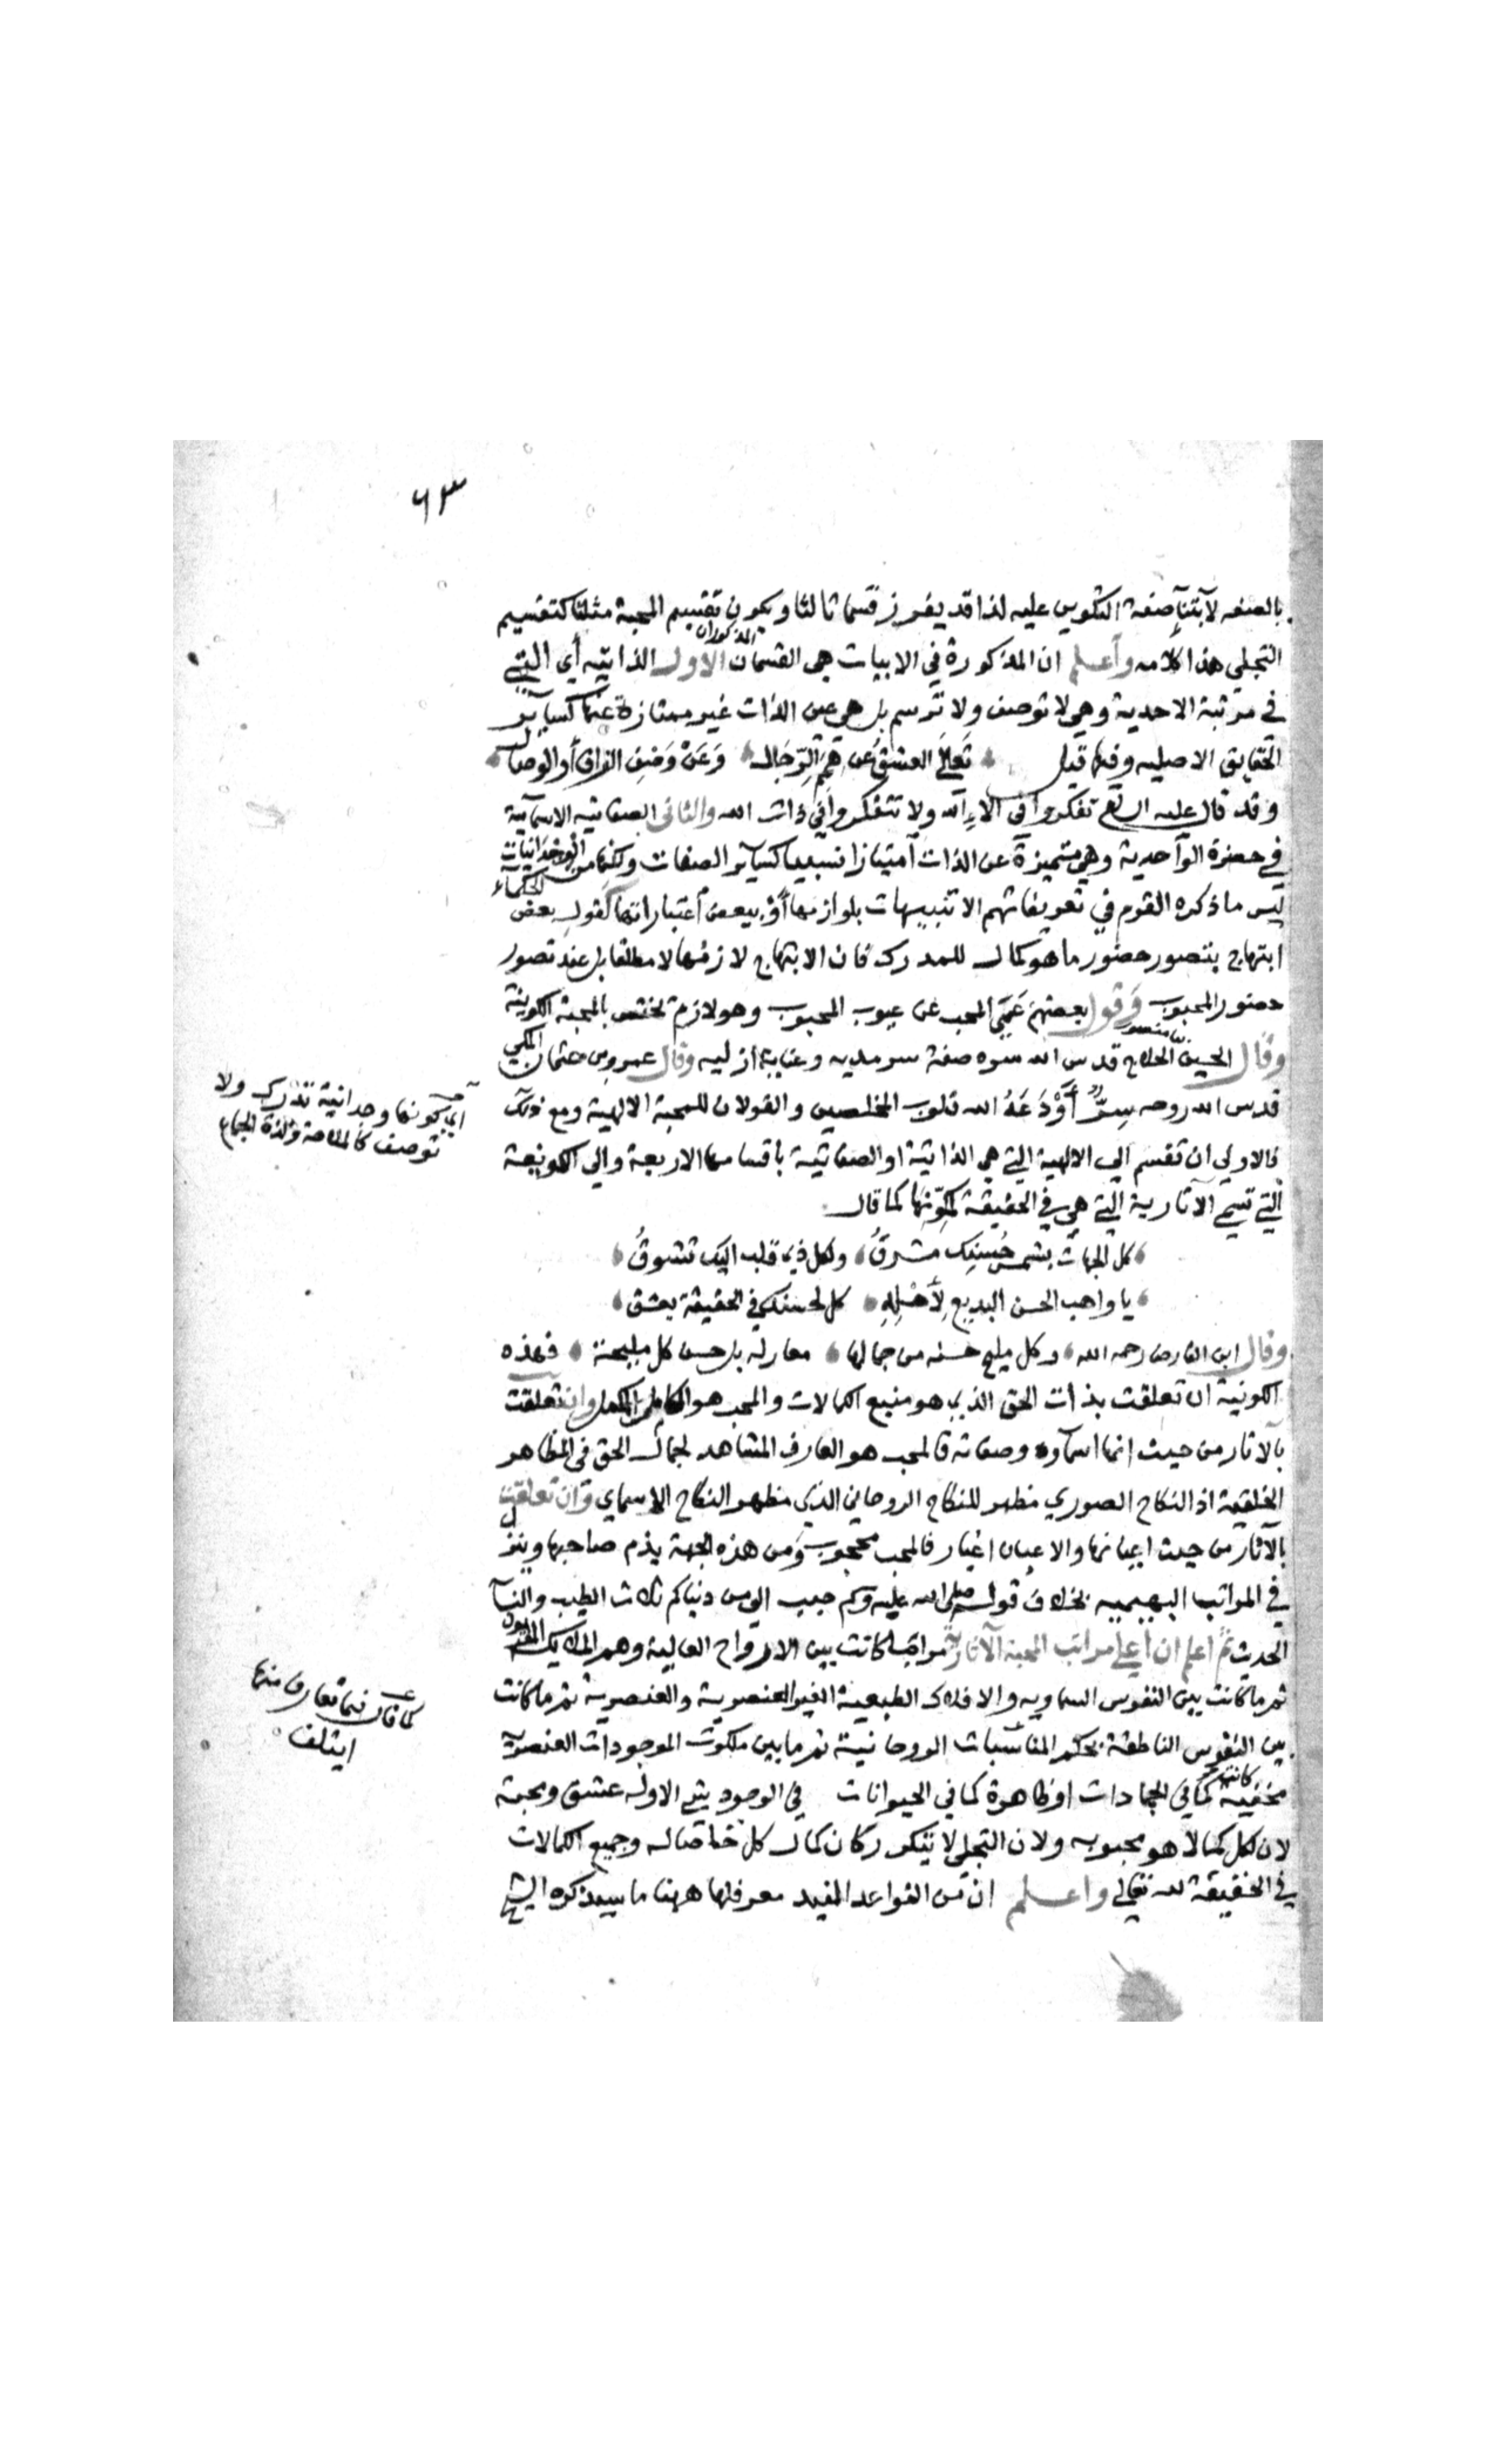 ٦٣
بالصفه لابتنآء صفة التكوين عليه لذا قد يفرز قسما ثالثا ويكون تقسيم المحبة مثلثا كتقسيم
التجلي هذا كلامه واعلم ان المذكورة في الابيات هي القسمان المذكوران الاول الذاتيه أي التي
في مرتبة الاحدية وهي لا توصف ولا ترسم بل هي عين الذات غير ممتازة عنها كساير
الحقايق الاصليه وفيها قيل تعالى العشق عن همم الرجال وعن وصف الفراق أو الوصال
وقد قال عليه السلام تفكروا في الاء الله ولا تتفكروا في ذات الله والثاني الصفاتيه الاسمآئية
في حضرة الوآحدية وهي متميزة عن الذات آمتيازا نسبيا كسآير الصفات ولكنها من الوجدانيات
ليس ما ذكره القوم في تعريفاتهم الا تنبيهات بلوازمها أو ببعض أعتباراتها كقول بعض الحكماء
ابتهاج بتصور حضور ما هو كمال للمدرك فان الابتهاج لازمها لا مطلقا بل عند تصور
حضور المحبوب وقول بعضهم عمي المحب عن عيوب المحبوب وهو لازم تختص بالمحبة الكونية
وقال الحسين بن منصور الحلاج قدس الله سره صفة سرمديه وعناية ازليه وقال عمرو بن عثمان المكي
قدس الله روحه سرٌّ أَوْدَعَهُ الله قلوب المخلصين والقولان للمحبة الالهية ومع ذلك
فالاولى ان تقسم الى الالهية التي هي الذاتية او الصفاتية باقسامها الاربعة والى الكونية
التي تسمى الآثارية التي هي في الحقيقة لمكوّنها كما قال
كل الجهات بشمس حسنك مشرقُ ولكل ذي قلب اليك تشوقُ
يا واهب الحسن البديع لأهله كل لحسنك في الحقيقة يعشق
وقال ابن الفارض رحمه الله وكل مليح حسنه من جمالها معار له بل حسن كل مليحة فهذه
الكونية ان تعلقت بذات الحق الذي هو منبع الكمالات والمحب هو الكامل المكمل وان تعلقت
بالاثار من حيث انها اسمآوه وصفاته فالمحب هو العارف المشاهد لجمال الحق في المظاهر
الخلقية اذ النكاح الصوري مظهر للنكاح الروحاني الذي مظهر النكاح الاسماي وان تعلقت
بالآثار من حيث اعيانها والاعيان اغيار فالمحب محجوب ومن هذه الجهة يذم صاحبها وينزل
في المراتب البهيميه بخلاف قوله صلى الله عليه وسلم حبب الي من دنياكم ثلاث الطيب والنسآ
الحديث ثم اعلم ان أعلى مراتب المحبة الآثارية مراتبا كانت بين الارواح العالية وهم الملايكة المقربون
ثم ما كانت بين النفوس السماويه والافلاك الطبيعية الغير العنصرية والعنصرية ثم ما كانت
بين النفوس الناطقة بحكم المناسبات الروحانية ثم ما بين ملكوت الموجودات العنصرية
مخفية كانت كما في الجمادات او ظاهرة كما في الحيوانات في الوجود الاوله عشق ومحبة
لان لكل كمالا هو محبوبه ولان التجلي لا يتكرر كان كمال كل خاصا له وجميع الكمالات
في الحقيقة لله تعالى واعلم ان من القواعد المفيد معرفتها ههنا ما سيذكره الشيخ
أي كونها وجدانية تدرك ولا
توصف كالملاحة ولذة الجماع
كما قال فما تعارف منها
ايتلف